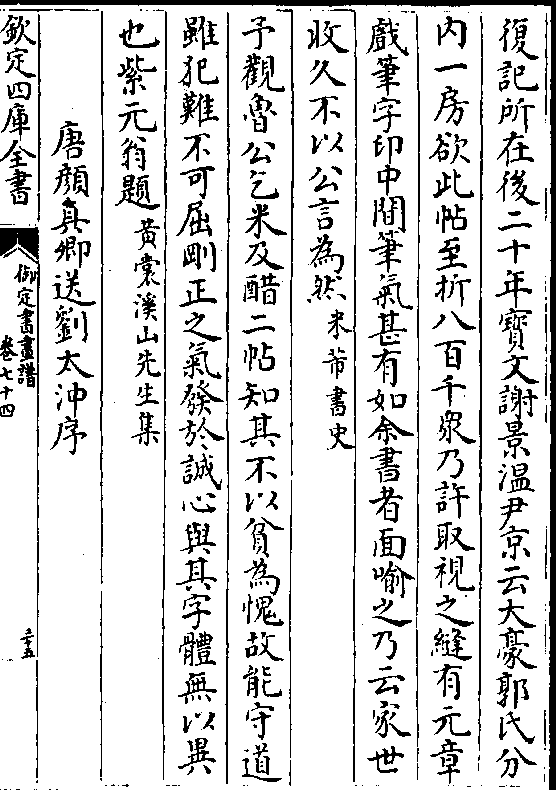 復記所在後二十年寶文謝景溫尹京云大豪郭氏分
内一房欲此帖至折八百千衆乃許取視之縫有元章
戲筆字印中間筆氣甚有如余書者面喻之乃云家世
收久不以公言為然 米芾書史
予觀魯公乞米及醋二帖知其不以貧為愧故能守道
雖犯難不可屈剛正之氣發於誠心與其字體無以異
也紫元翁題 黃裳溪山先生集
唐顔真卿送劉太沖序
欽定四庫全書
御定書畫譜
卷七十四
三十五